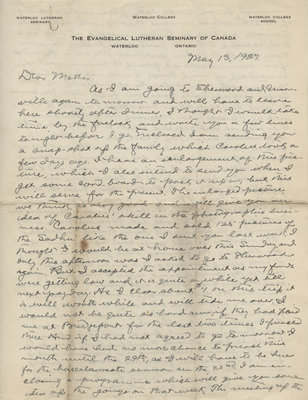 WATERLOO LUTHERAN SEMINARY
WATERLOO COLLEGE
WATERLOO COLLEGE SCHOOL
THE EVANGELICAL LUTHERAN SEMINARY OF CANADA
WATERLOO ONTARIO
May 13, 1927
Dear Mother,
As I am going to
again to-morrow and will have to leave
here shortly after dinner, I thought I would take
time by the forelock and write you a few lines
to-night before I go. Inclosed I am sending you
a snap-shot of the family, which Carolus took a
few days ago. I have an enlargement of this pic-
ture, which I also intend to send you when I
get some card board to post it up in, but this
will serve for the present. The enlarged picture,
is very good and will give you an
idea of Carolus' skill in the photographic busi-
ness. Carolus made and sold 125 pictures of
the Sadhu like the one I sent you last time. I
thought I would be at home over this Sunday and
only this afternoon was I asked to go to
again. But I accepted the appointment as my funds
were getting low and it is quite a while yet till
next pay-day. As I clear about on this trip it
is well worth while and will tide me over. I
would not be quite so hard run if they had paid
me at Bridgeport for the last two times I preached
there. And if I had not agreed to go to-morrow I
would have had no more chance to preach this
month until the 29th, as I will have to be here
for the baccalaureate sermon on the 22nd. I am en-
closing a programme which will give you some
idea of the goings on that week. The meeting of the